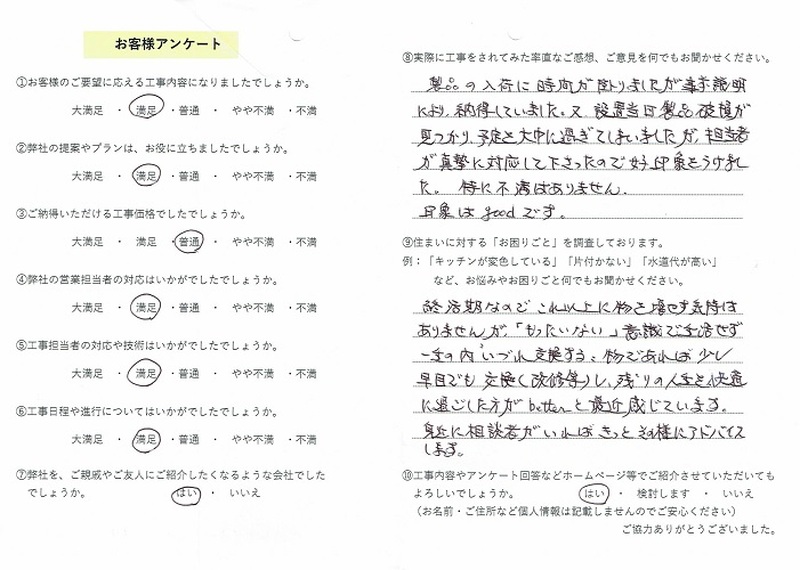 お客様アンケート
①お客様のご要望に応える工事内容になりましたでしょうか。
大満足 ・ 満足 ・普通 ・ やや不満 ・不満
②弊社の提案やプランは、お役に立ちましたでしょうか。
大満足 ・ 満足 ・普通 ・ やや不満 ・不満
③ご納得いただける工事価格でしたでしょうか。
大満足 ・ 満足 ・普通 ・ やや不満 ・不満
④弊社の営業担当者の対応はいかがでしたでしょうか。
大満足 ・ 満足 ・普通 ・ やや不満 ・不満
⑤工事担当者の対応や技術はいかがでしたでしょうか。
大満足 ・ 満足 ・普通 ・ やや不満 ・不満
⑥工事日程や進行についてはいかがでしたでしょうか。
大満足 ・ 満足 ・普通 ・ やや不満 ・不満
⑦弊社を、ご親戚やご友人にご紹介したくなるような会社でした
でしょうか。 はい ・ いいえ
⑧実際に工事をされてみた率直なご感想、ご意見を何でもお聞かせください。
製品の入荷に時間が掛りましたが事前説明
により、納得していました。又、設置当日製品破損が
見つかり、予定を大巾に過ぎてしまいましたが、担当者
が真摯に対応して下さったので好印象をうけまし
た。 特に不満はありません。
印象は goodです。
⑨住まいに対する「お困りごと」を調査しております。
例：「キッチンが変色している」「片付かない」「水道代が高い」
など、お悩みやお困りごと何でもお聞かせください。
終活期なのでこれ以上に物を増やす気持は
ありませんが、「もったいない」意識で生活せず
いづれ交換する、物であれば少し
早目でも交換(改修等)し、残りの人生を快適
に過ごした方がbetterと最近感じています。
身近に相談者がいればきっとその様にアドバイス
します。
⑩工事内容やアンケート回答などホームページ等でご紹介させていただいても
よろしいでしょうか。 はい ・ 検討します ・ いいえ
（お名前・ご住所など個人情報は記載しませんのでご安心ください）
ご協力ありがとうございました。